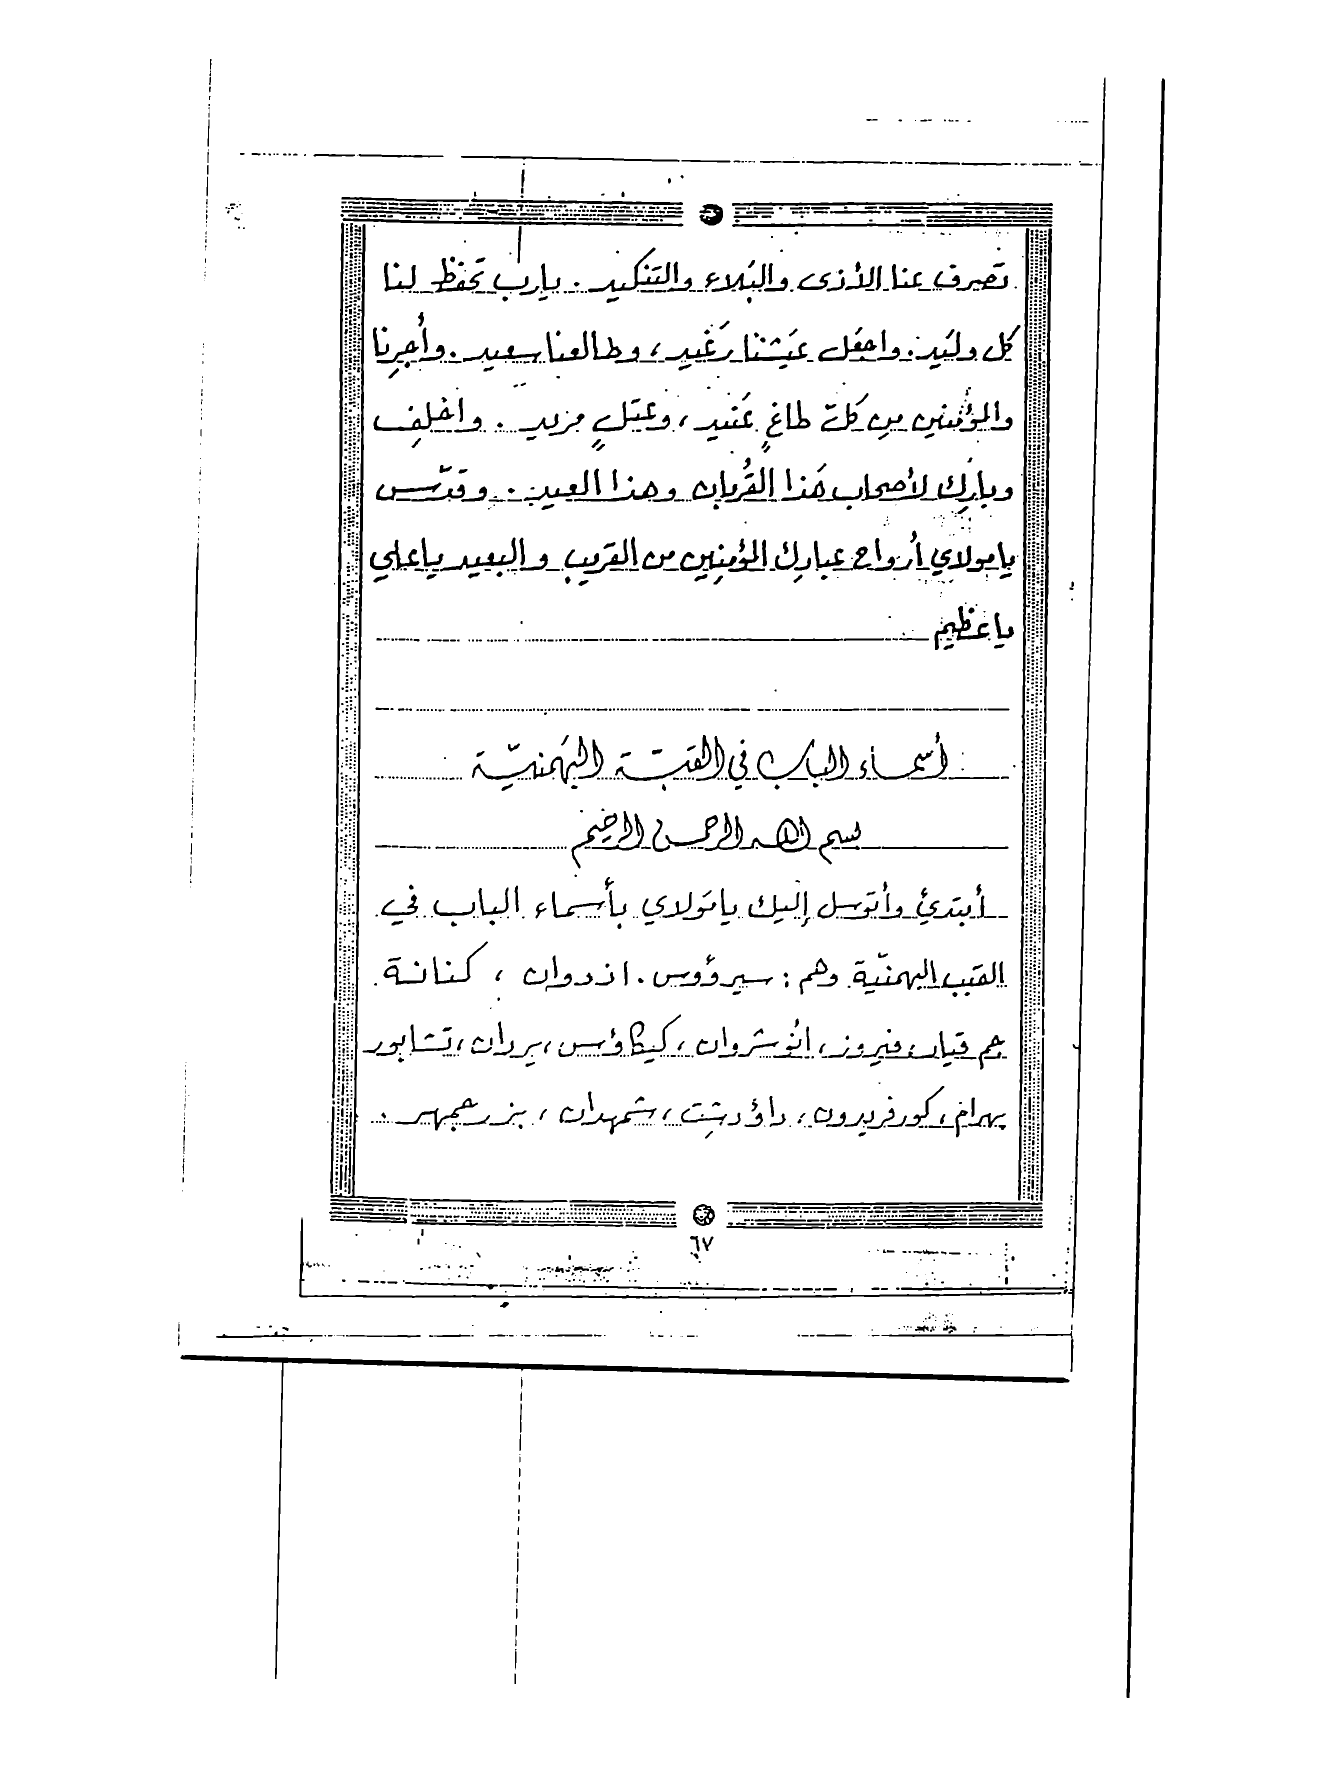 تصرف عنا الأذى والبَلاء والتَنكيد . يارب تحفظ لنا
كل وليَد . واجعَل عَيشنا رَغيد ، وطالعنا سعيد . وأُجِرنا
والمؤمنين مِن كلّ طاغٍ عَنيد ، وعتلٍ مريد . واخلِف
وبارِك لأصحاب هَذا القُربان وهذا العيد . وقدّس
يا مولاي أرواح عبادِك المؤمِنين من القريب والبعيد ياعلي
ياعظيم
أسماء الباب في القبّة البَهمنيّة
بسم الله الرحمن الرحيم
أبتدئ وأتوسل إليك يا مَولاي بأسماء الباب في
القبب البهمنّية وهم : سيرؤوس . اذدوان ، كنانة
جم قيار ، فيروز ، انُوشروان ، كيكاؤس ، يردان ، تشابور
بهرام ، كورفريدون ، داؤدشِت ، شمهدان ، بزرجمهر .
٦٧